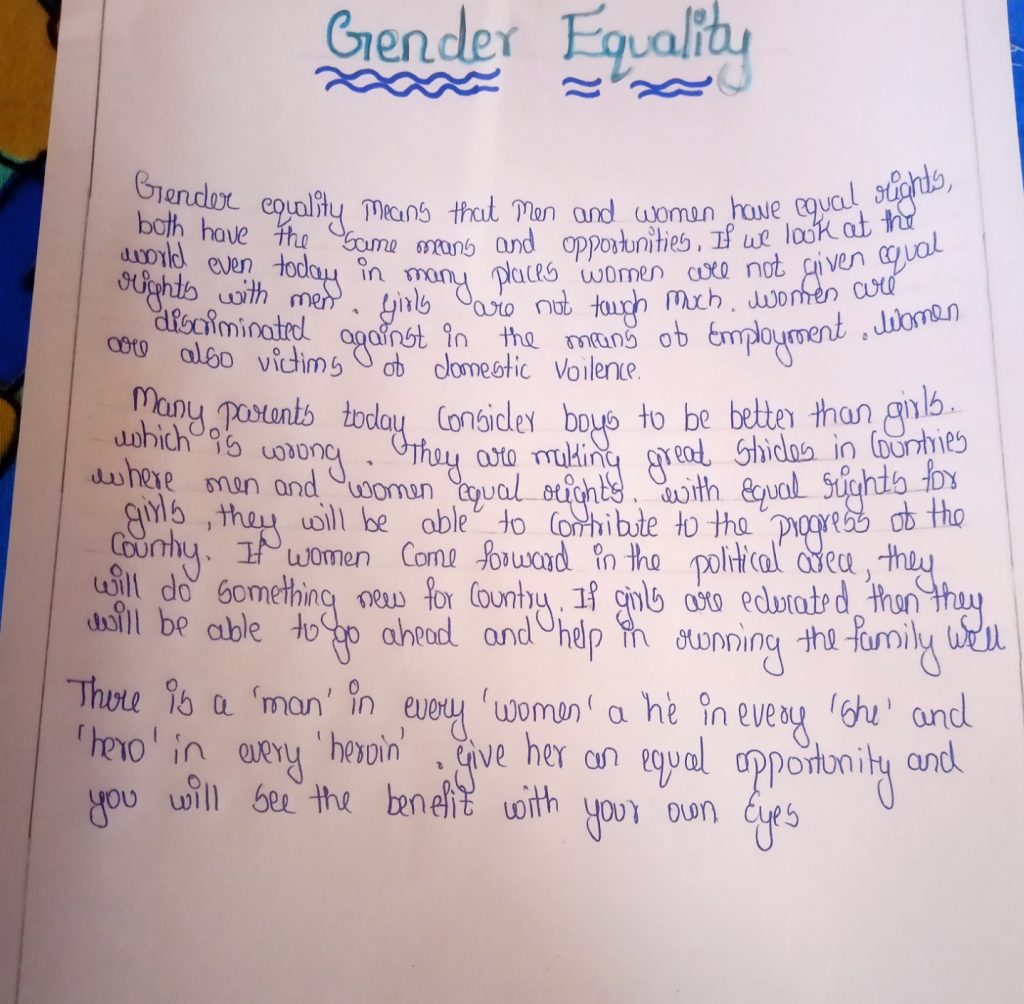 Gender Equality
Gender equality means that men and women have equal rights,
both have the same means and opportunities. If we look at the
world even today in many places women are not given equal
rights with men. girls are not taugh much. women are
discriminated against in the means of Employment. Women
are also victims of domestic Voilence.
Many parents today Consider boys to be better than girls.
which is wrong. They are making great strides in Countries
where men and women equal rights. with equal rights for
girls, they will be able to Contribute to the progress of the
Country. If women Come forward in the political area, they
will do something new for Country. If girls are educated then they
will be able to go ahead and help in running the family well
There is a 'man' in every 'women' a 'he in every 'she' and
'hero' in every 'heroin'. give her an equal opportunity and
you will see the benefit with your own Eyes